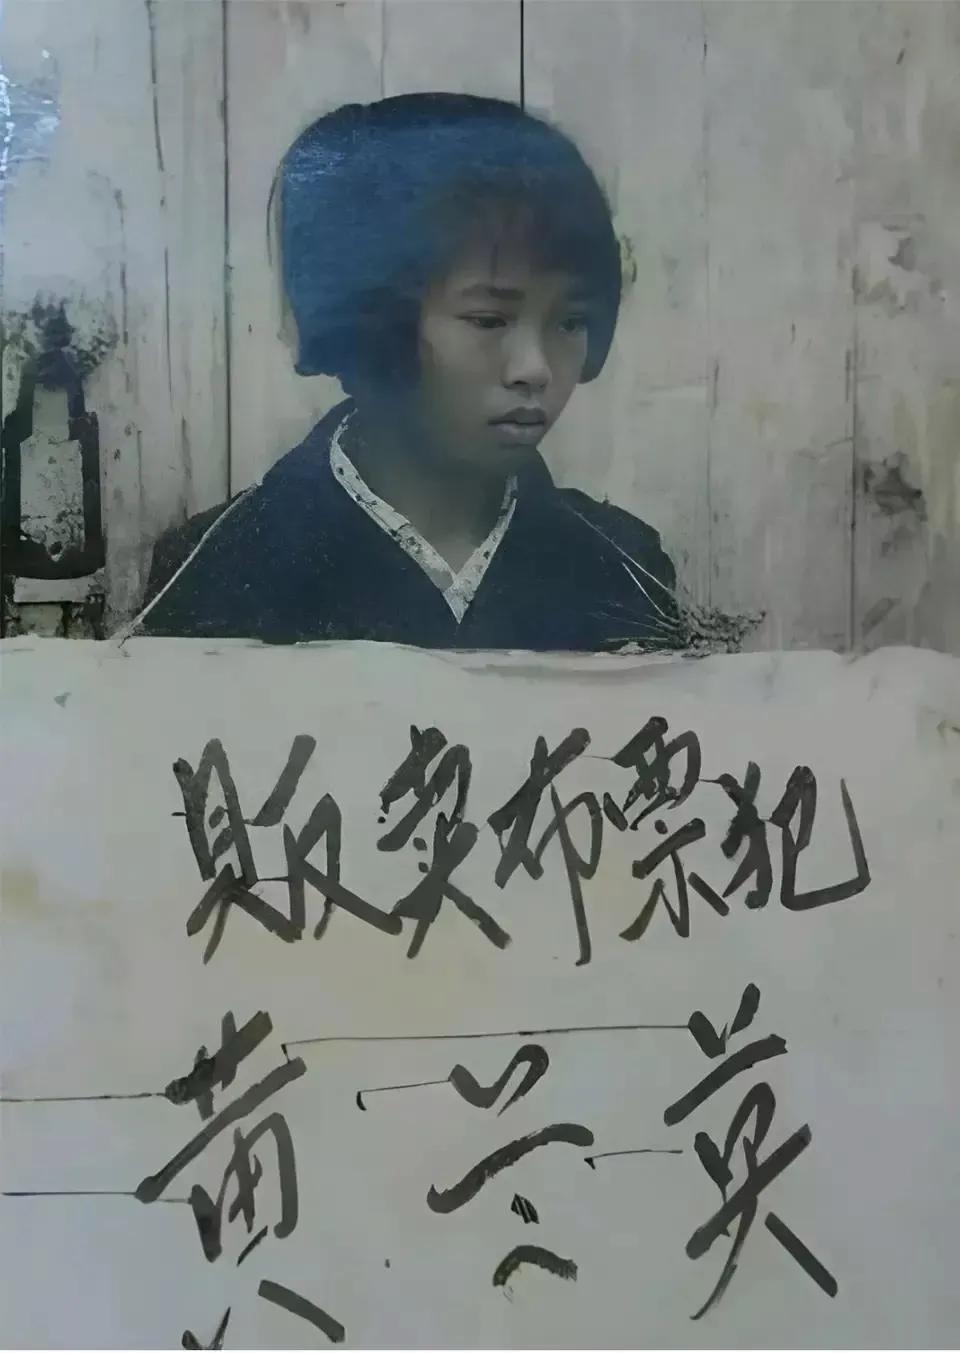 贩卖布票犯
黄兰英